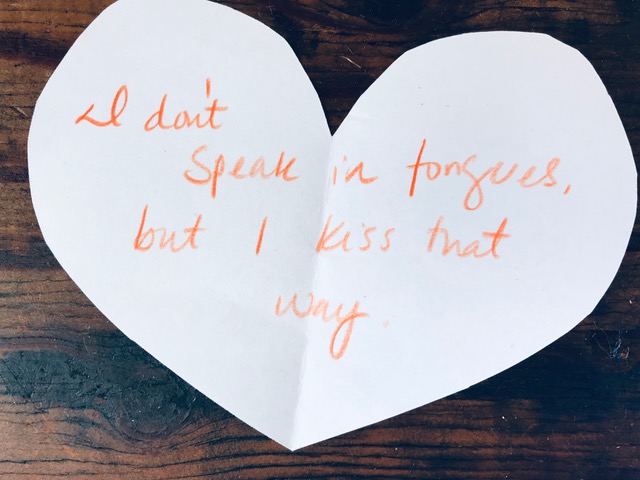 I don't
speak in tongues,
but I kiss that
way.